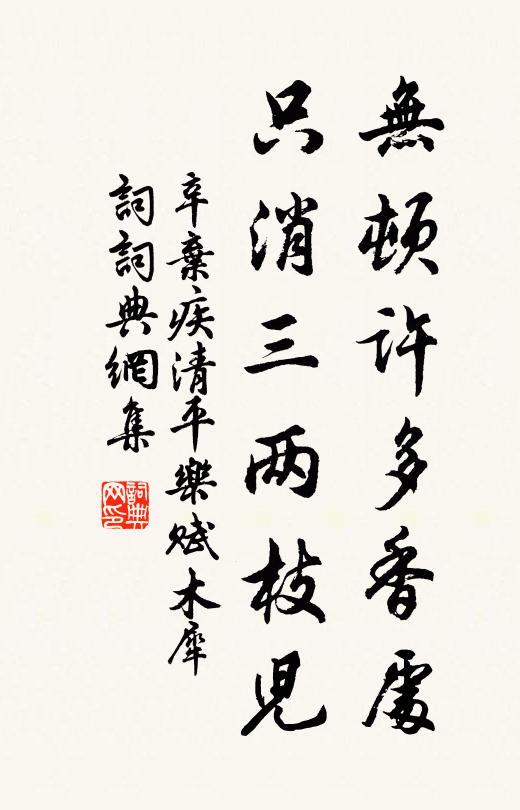 無頓許多香處
只消三两枝児
辛棄疾清平樂賦木犀
詞詞典網集
詞典网印